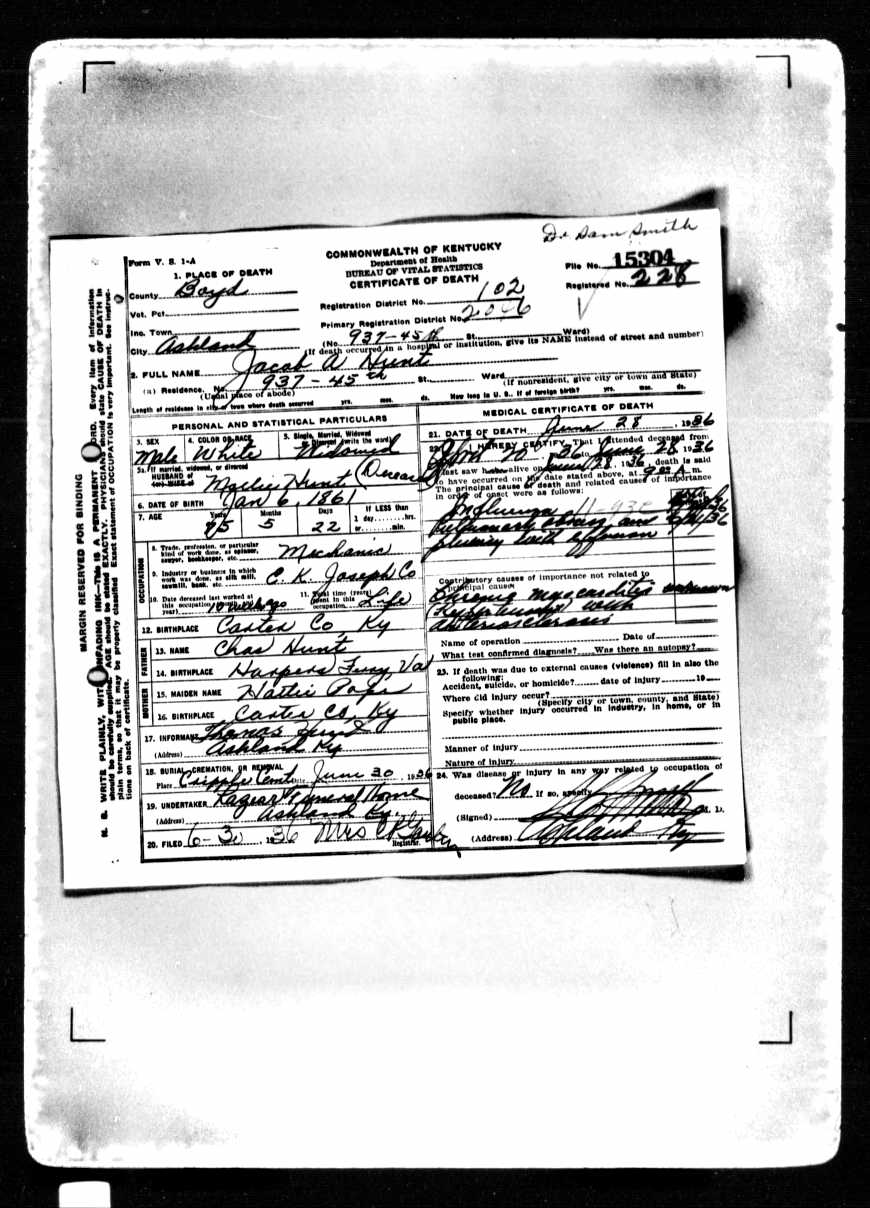 Dr Sam Smith
Form V. S. 1-A
COMMONWEALTH OF KENTUCKY
Department of Health
BUREAU OF VITAL STATISTICS
CERTIFICATE OF DEATH
File No. 15304
Registered No. 228
1. PLACE OF DEATH
County Boyd
Registration District No. 102
Vot. Pct.
Primary Registration District No.
Inc. Town
(No. 937-45th St. Ward)
City Ashland
(If death occurred in a hospital or institution, give its NAME instead of street and number)
2. FULL NAME Jacob A Hunt
(a) Residence. No. 937-45th St. Ward
(Usual place of abode) (If nonresident, give city or town and State)
Length of residence in city or town where death occurred yrs. mos. ds. How long in U. S., if of foreign birth? yrs. mos. ds.
PERSONAL AND STATISTICAL PARTICULARS
3. SEX 4. COLOR OR RACE 5. Single, Married, Widowed or Divorced (write the word)
Male White Widowed
5a. If married, widowed, or divorced
HUSBAND of
(or) WIFE of Hunt
6. DATE OF BIRTH Jan 6, 1861
7. AGE Years Months Days If LESS than
75 5 22 1 day hrs.
or min.
OCCUPATION
8. Trade, profession, or particular kind of work done, as spinner, sawyer, bookkeeper, etc. Mechanic
9. Industry or business in which work was done, as silk mill, sawmill, bank, etc. C. K. Joseph Co
10. Date deceased last worked at this occupation (month and year) 11. Total time (years) spent in this occupation Life
12. BIRTHPLACE Carter Co Ky
FATHER
13. NAME Chas Hunt
14. BIRTHPLACE Harpers Ferry, Va
MOTHER
15. MAIDEN NAME Hattie
16. BIRTHPLACE Carter Co, Ky
17. INFORMANT Thomas Hunt
(Address) Ashland Ky
18. BURIAL, CREMATION, OR REMOVAL
Place June 30, 1936
19. UNDERTAKER Funeral Home
(Address) Ashland Ky.
20. FILED 6-30, 1936 Mrs
Registrar.
MEDICAL CERTIFICATE OF DEATH
21. DATE OF DEATH June 28, 1936
22. I HEREBY CERTIFY, That I attended deceased from
April 20 36 to June 28 1936
I last saw him alive on June 28, 1936, death is said
to have occurred on the date stated above, at 9 A m.
The principal cause of death and related causes of importance
in order of onset were as follows:
Influenza
Pulmonary and
pleurisy with effusion
Contributory causes of importance not related to
principal cause:
Chronic myocarditis unknown
with
arteriosclerosis
Name of operation Date of
What test confirmed diagnosis? Was there an autopsy?
23. If death was due to external causes (violence) fill in also the
following:
Accident, suicide, or homicide? date of injury 19
Where did injury occur?
(Specify city or town, county, and State)
Specify whether injury occurred in industry, in home, or in
public place.
Manner of injury
Nature of injury
24. Was disease or injury in any way related to occupation of
deceased? No If so, specify
(Signed) M. D.
(Address) Ashland Ky
MARGIN RESERVED FOR BINDING
N. B. WRITE PLAINLY, WITH UNFADING INK—THIS IS A PERMANENT RECORD. Every item of information
should be carefully supplied. AGE should be stated EXACTLY. PHYSICIANS should state CAUSE OF DEATH in
plain terms, so that it may be properly classified. Exact statement of OCCUPATION is very important. See instruc-
tions on back of certificate.